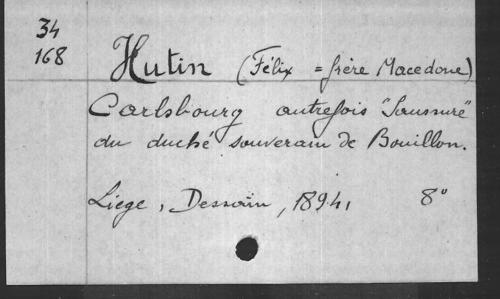 34
168
Hutin (Félix = frère Macedone)
Carlsbourg autrefois "Saussure"
du duché souverain de Bouillon.
Liege, Dessain, 1894, 8°